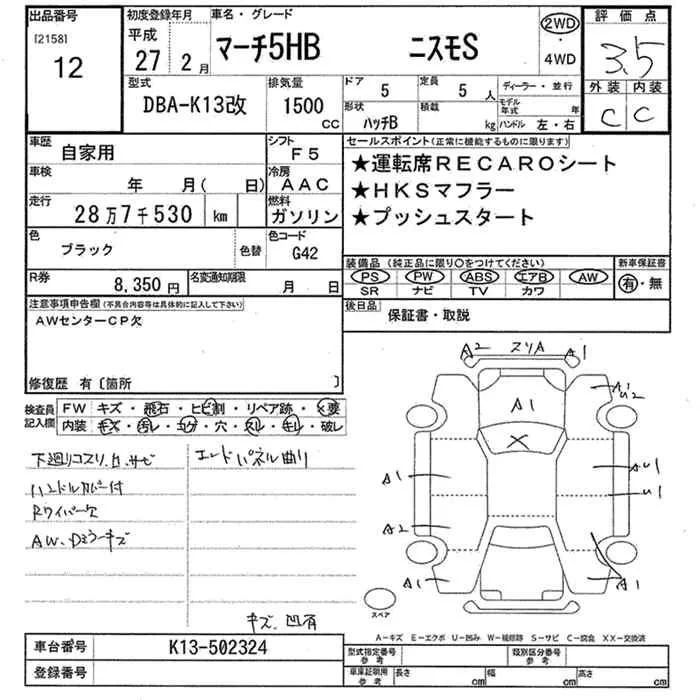 出品番号
[2158]
12
初度登録年月
平成
27 2月
車名・グレード
マーチ5HB ニスモS
2WD
・
4WD
評価点
3.5
外装 内装
C C
型式
DBA-K13改
排気量
1500
cc
ドア
5
定員
5 人
ディーラー・並行
形状
ハッチB
積載
kg
モデル年式 年
ハンドル 左・右
車歴
自家用
シフト
F5
車検
年 月( 日)
冷房
AAC
走行
28万7千530 km
燃料
ガソリン
色
ブラック
色替
色コード
G42
R券
8,350円
名変通知期限
月 日
セールスポイント(正常に機能するものに限ります)
★運転席RECAROシート
★HKSマフラー
★プッシュスタート
装備品(純正品に限り○をつけてください)
PS PW ABS エアB AW
SR ナビ TV カワ
新車保証書
有・無
後日品
保証書・取説
注意事項申告欄(不具合内容等は具体的に記入して下さい)
AWセンターCP欠
修復歴 有〔箇所 〕
検査員記入欄
FW キズ・飛石・ヒビ割・リペア跡・×要
内装 キズ・汚レ・コゲ・穴・スレ・キレ・破レ
下廻リコスリ、凹、サビ
エンドパネル曲り
ハンドルカバー付
Rワイパー欠
AW、Dミラーキズ
キズ、凹有
A2 スリA A1
A1
X
A1
A1
A2
AU1
U1
A1
A1
スペア
A-キズ E-エクボ U-凹み W-補修跡 S-サビ C-腐食 XX-交換済
車台番号
K13-502324
登録番号
型式指定番号
参考
類別区分番号
参考
車庫証明用
参考
長さ cm
幅 cm
高さ cm